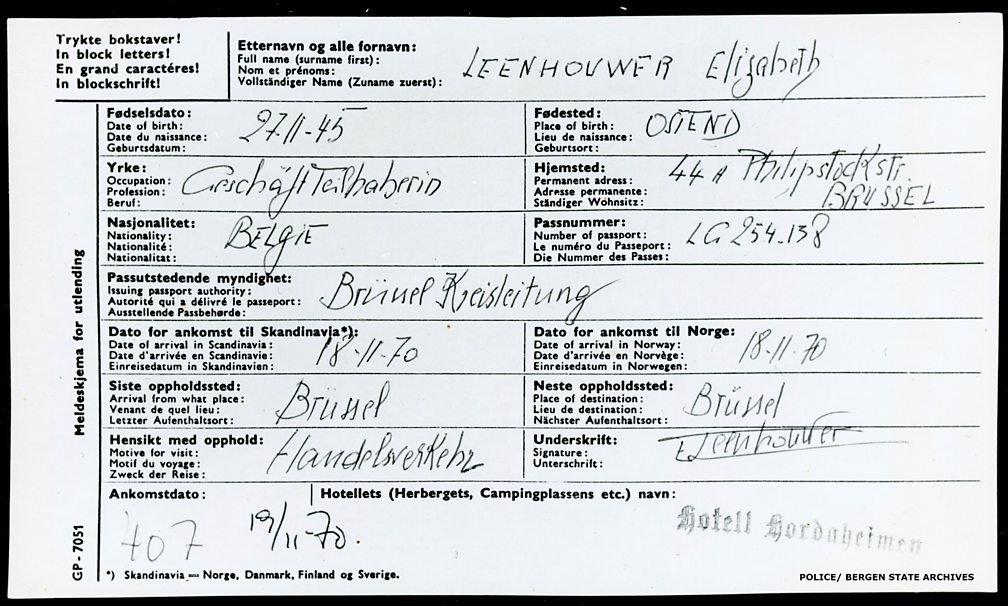 Trykte bokstaver!
In block letters!
En grand caractéres!
In blockschrift!
Etternavn og alle fornavn:
Full name (surname first):
Nom et prénoms:
Vollständiger Name (Zuname zuerst):
LEENHOUWER Elizabeth
Fødselsdato:
Date of birth:
Date du naissance:
Geburtsdatum:
27-11-45
Fødested:
Place of birth:
Lieu de naissance:
Geburtsort:
OSTEND
Yrke:
Occupation:
Profession:
Beruf:
GeschäftTeilhaberin
Hjemsted:
Permanent adress:
Adresse permanente:
Ständiger Wohnsitz:
44 A Philipstockstr.
BRÜSSEL
Nasjonalitet:
Nationality:
Nationalité:
Nationalitat:
BELGIE
Passnummer:
Number of passport:
Le numéro du Passeport:
Die Nummer des Passes:
LG 254.138
Passutstedende myndighet:
Issuing passport authority:
Autorité qui a délivré le passeport:
Ausstellende Passbehørde:
Brüssel Kreisleitung
Dato for ankomst til Skandinavia*):
Date of arrival in Scandinavia:
Date d'arrivée en Scandinavie:
Einreisedatum in Skandinavien:
18-11-70
Dato for ankomst til Norge:
Date of arrival in Norway:
Date d'arrivée en Norvège:
Einreisedatum in Norwegen:
18-11-70
Siste oppholdssted:
Arrival from what place:
Venant de quel lieu:
Letzter Aufenthaltsort:
Brüssel
Neste oppholdssted:
Place of destination:
Lieu de destination:
Nächster Aufenthaltsort:
Brüssel
Hensikt med opphold:
Motive for visit:
Motif du voyage:
Zweck der Reise:
Handelsverkehr
Underskrift:
Signature:
Unterschrift:
E Leenhouwer
Ankomstdato:
407 19/11-70.
Hotellets (Herbergets, Campingplassens etc.) navn:
Hotell Hordaheimen
*) Skandinavia = Norge, Danmark, Finland og Sverige.
Meldeskjema for utlending
GP-7051
POLICE/ BERGEN STATE ARCHIVES